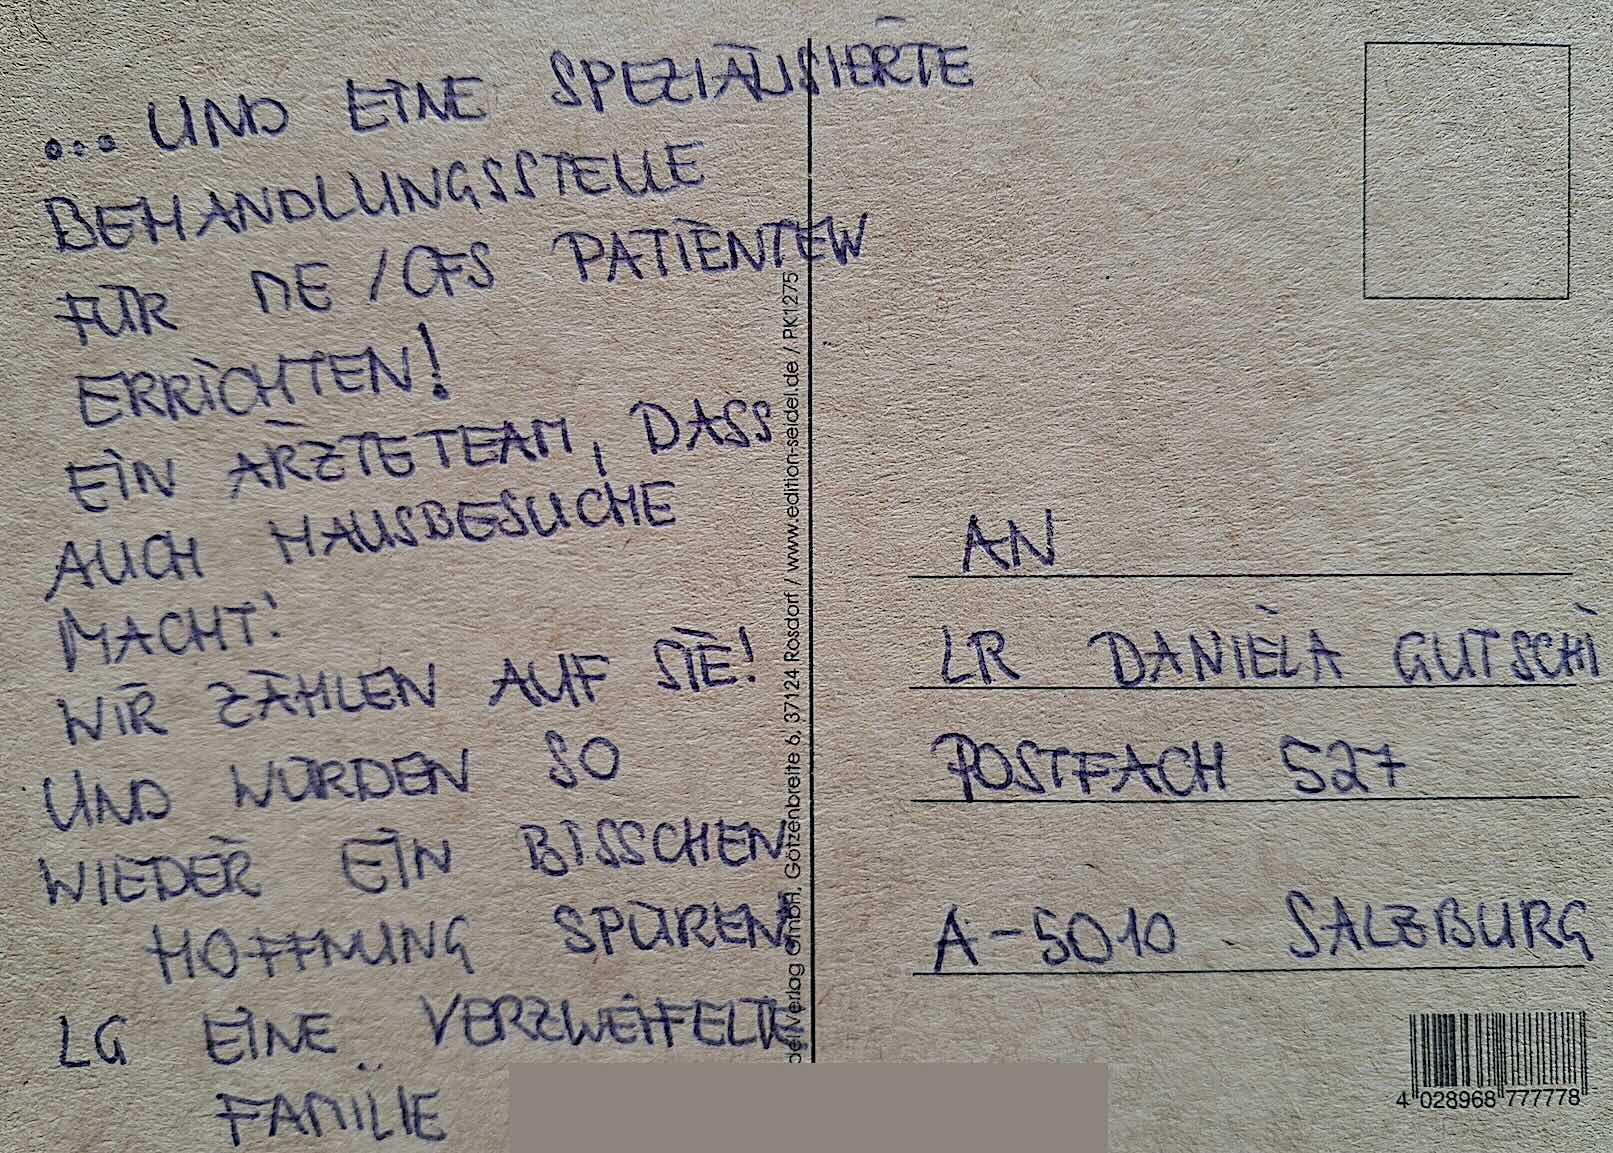 ... UND EINE SPEZIALISIERTE
BEHANDLUNGSSTELLE
FÜR ME/CFS PATIENTEN
ERRICHTEN!
EIN ÄRZTETEAM, DASS
AUCH HAUSBESUCHE
MACHT!
WIR ZÄHLEN AUF SIE!
UND WÜRDEN SO
WIEDER EIN BISSCHEN
HOFFNUNG SPÜREN!
LG EINE VERZWEIFELTE
FAMILIE
Verlag GmbH, Götzenbreite 6, 37124 Rosdorf / www.edition-seidel.de / PK1275
AN
LR DANIELA GUTSCHI
POSTFACH 527
A-5010 SALZBURG
4 028968 777778